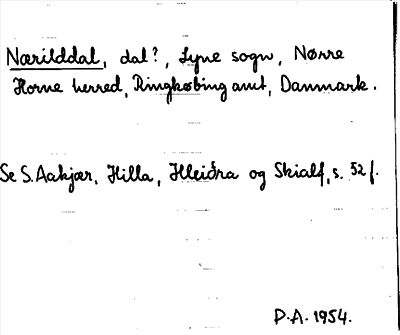 Nærilddal, dal?, Lyne sogn, Nørre
Horne herred, Ringkøbing amt, Danmark.
Se S. Aakjær, Hilla, Hleiðra og Skialf, s. 52 f.
D.A. 1954.